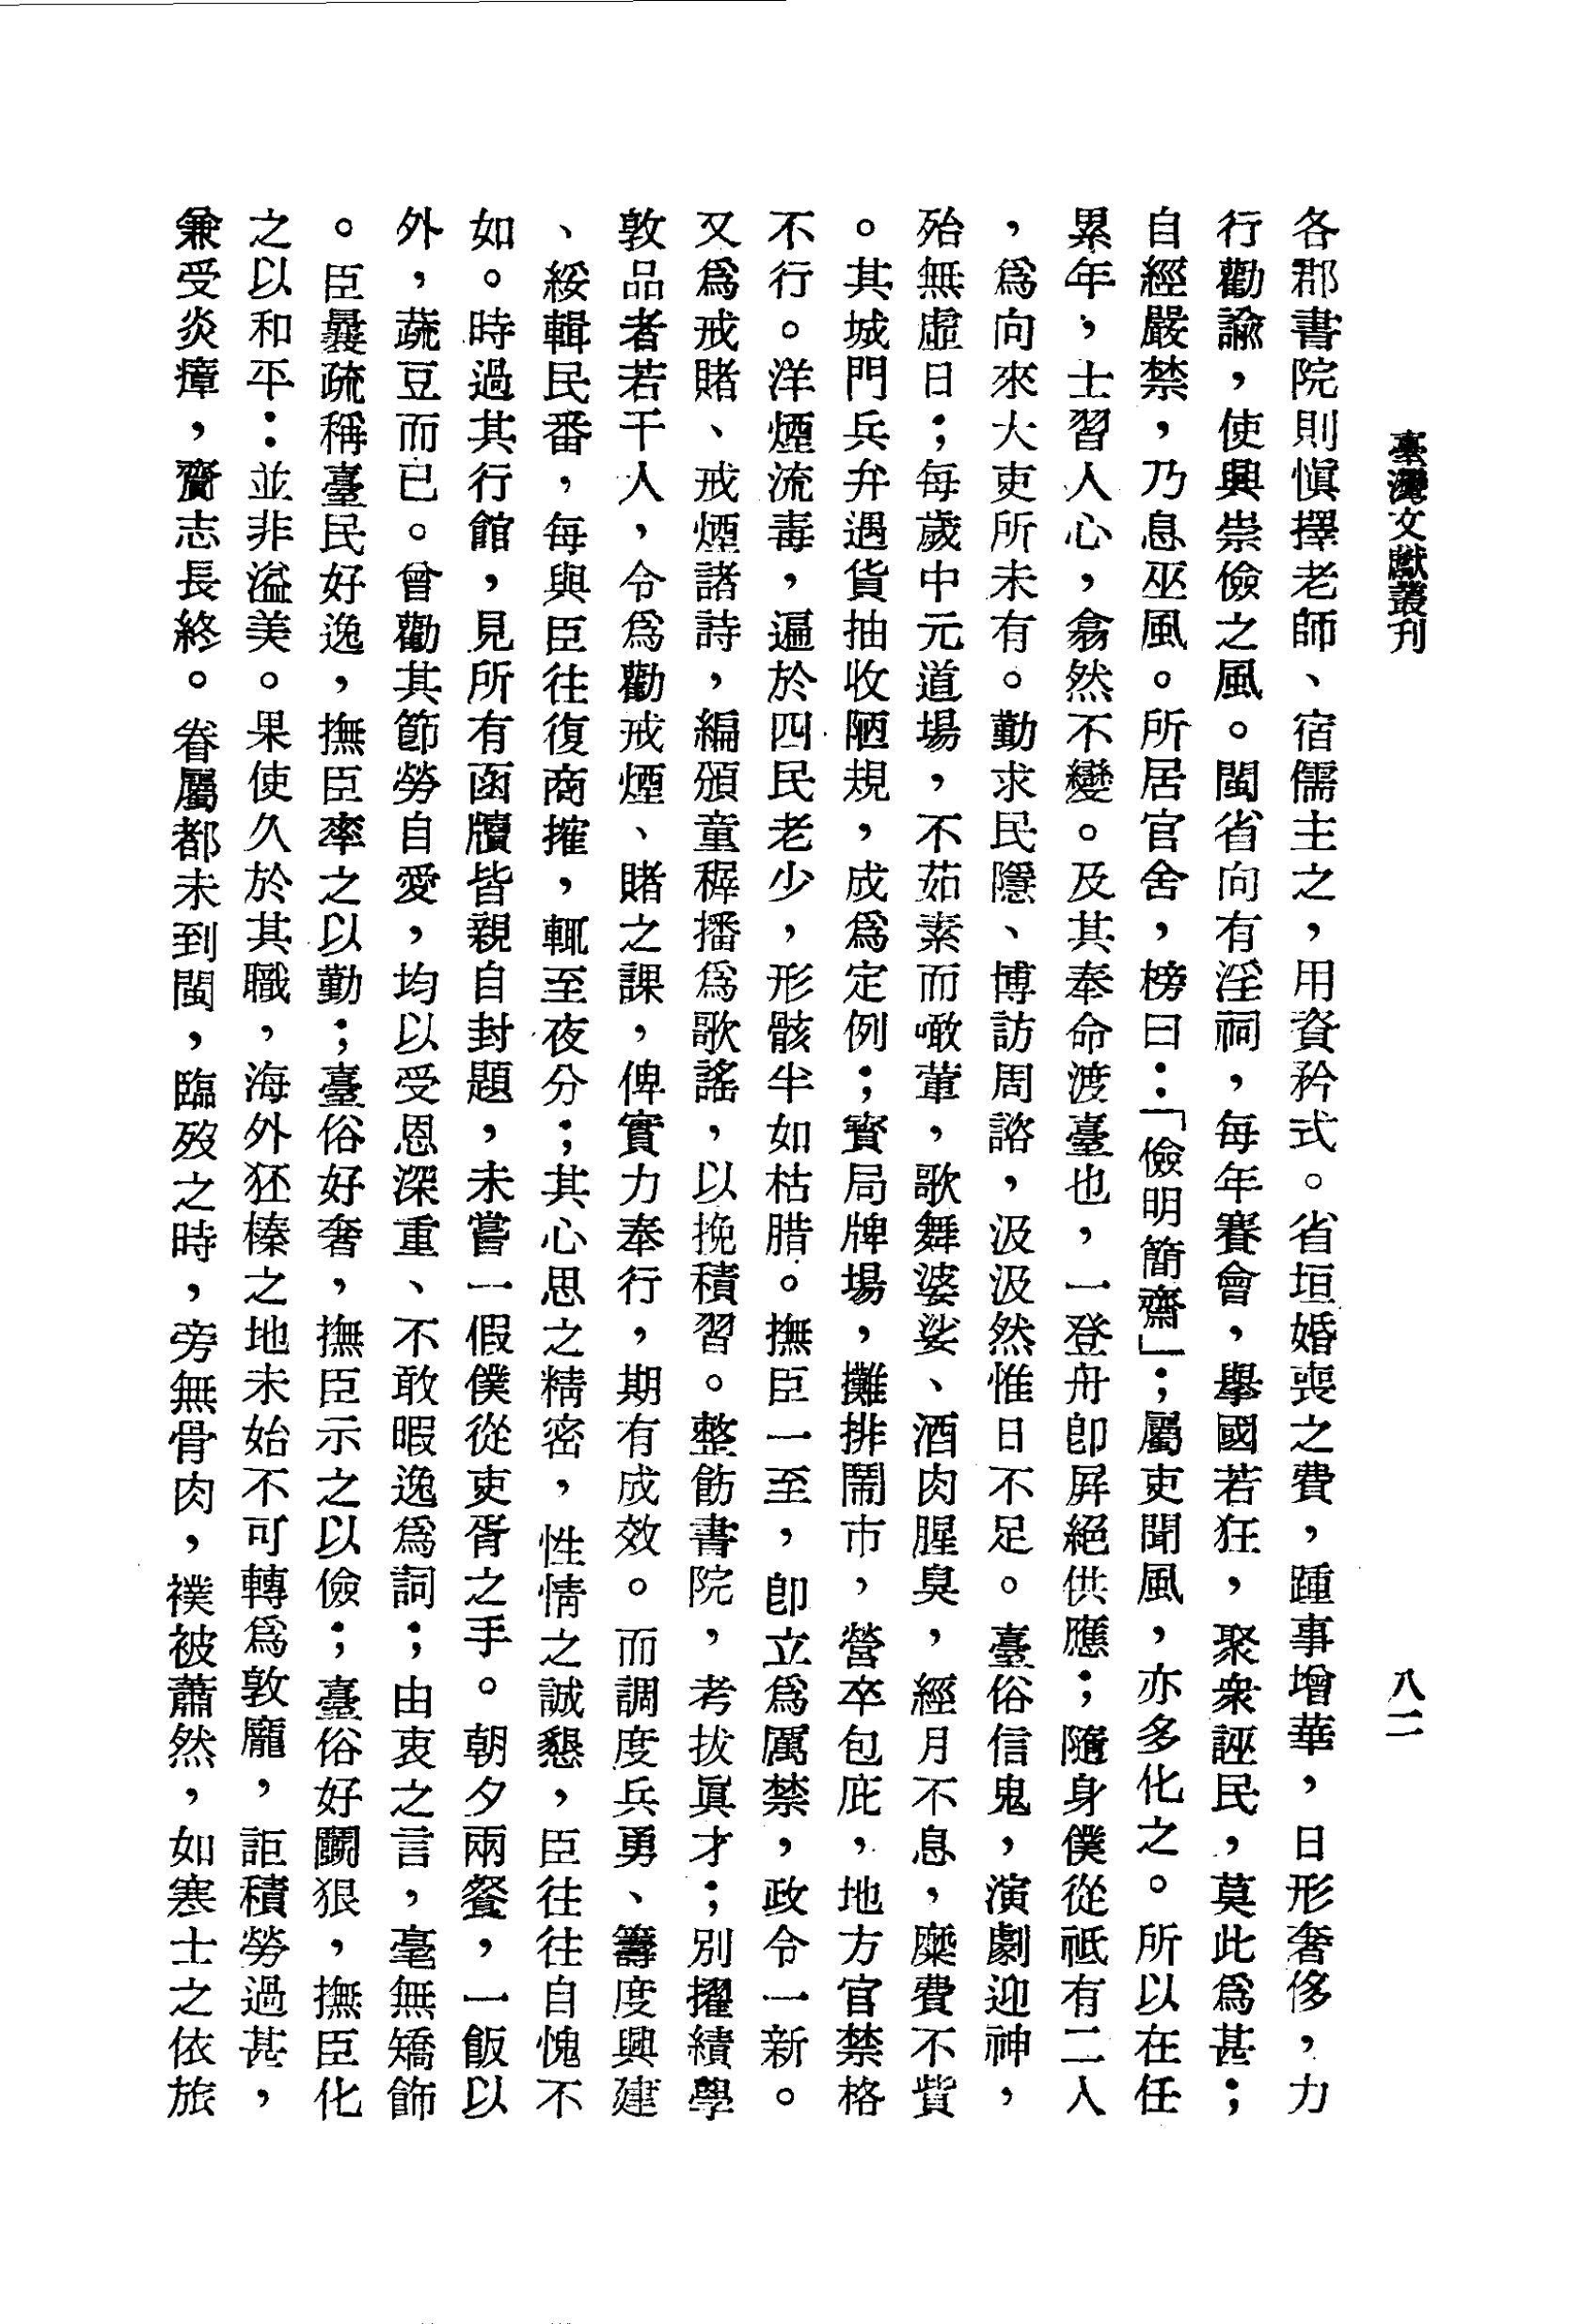 臺灣文獻叢刊
八二
各郡書院則愼擇老師、宿儒主之，用資矜式。省垣婚喪之費，踵事增華，日形奢侈，力
行勸諭，使興崇儉之風。閩省向有淫祠，每年賽會，擧國若狂，聚衆誣民，莫此爲甚；
自經嚴禁，乃息巫風。所居官舍，榜曰：「儉明簡齋」；屬吏聞風，亦多化之。所以在任
累年，士習人心，翕然不變。及其奉命渡臺也，一登舟卽屛絕供應；隨身僕從祗有二人
，爲向來大吏所未有。勤求民隱、博訪周諮，汲汲然惟日不足。臺俗信鬼，演劇迎神，
殆無虛日；每歲中元道場，不茹素而噉葷，歌舞婆娑、酒肉腥臭，經月不息，糜費不貲
。其城門兵弁遇貨抽收陋規，成爲定例；寳局牌場，攤排鬧市，營卒包庇，地方官禁格
不行。洋煙流毒，遍於四民老少，形骸半如枯腊。撫臣一至，卽立爲厲禁，政令一新。
又爲戒賭、戒煙諸詩，編頒童穉播爲歌謠，以挽積習。整飭書院，考拔眞才；別擢績學
敦品者若干人，令爲勸戒煙、賭之課，俾實力奉行，期有成效。而調度兵勇、籌度興建
、綏輯民番，每與臣往復商搉，輒至夜分；其心思之精密，性情之誠懇，臣往往自愧不
如。時過其行館，見所有函牘皆親自封題，未嘗一假僕從吏胥之手。朝夕兩餐，一飯以
外，蔬豆而已。曾勸其節勞自愛，均以受恩深重、不敢暇逸爲詞；由衷之言，毫無矯飾
。臣曩疏稱臺民好逸，撫臣率之以勤；臺俗好奢，撫臣示之以儉；臺俗好鬭狠，撫臣化
之以和平：並非溢美。果使久於其職，海外狉榛之地未始不可轉爲敦龐，詎積勞過甚，
兼受炎瘴，齎志長終。眷屬都未到閩，臨歿之時，旁無骨肉，襆被蕭然，如寒士之依旅